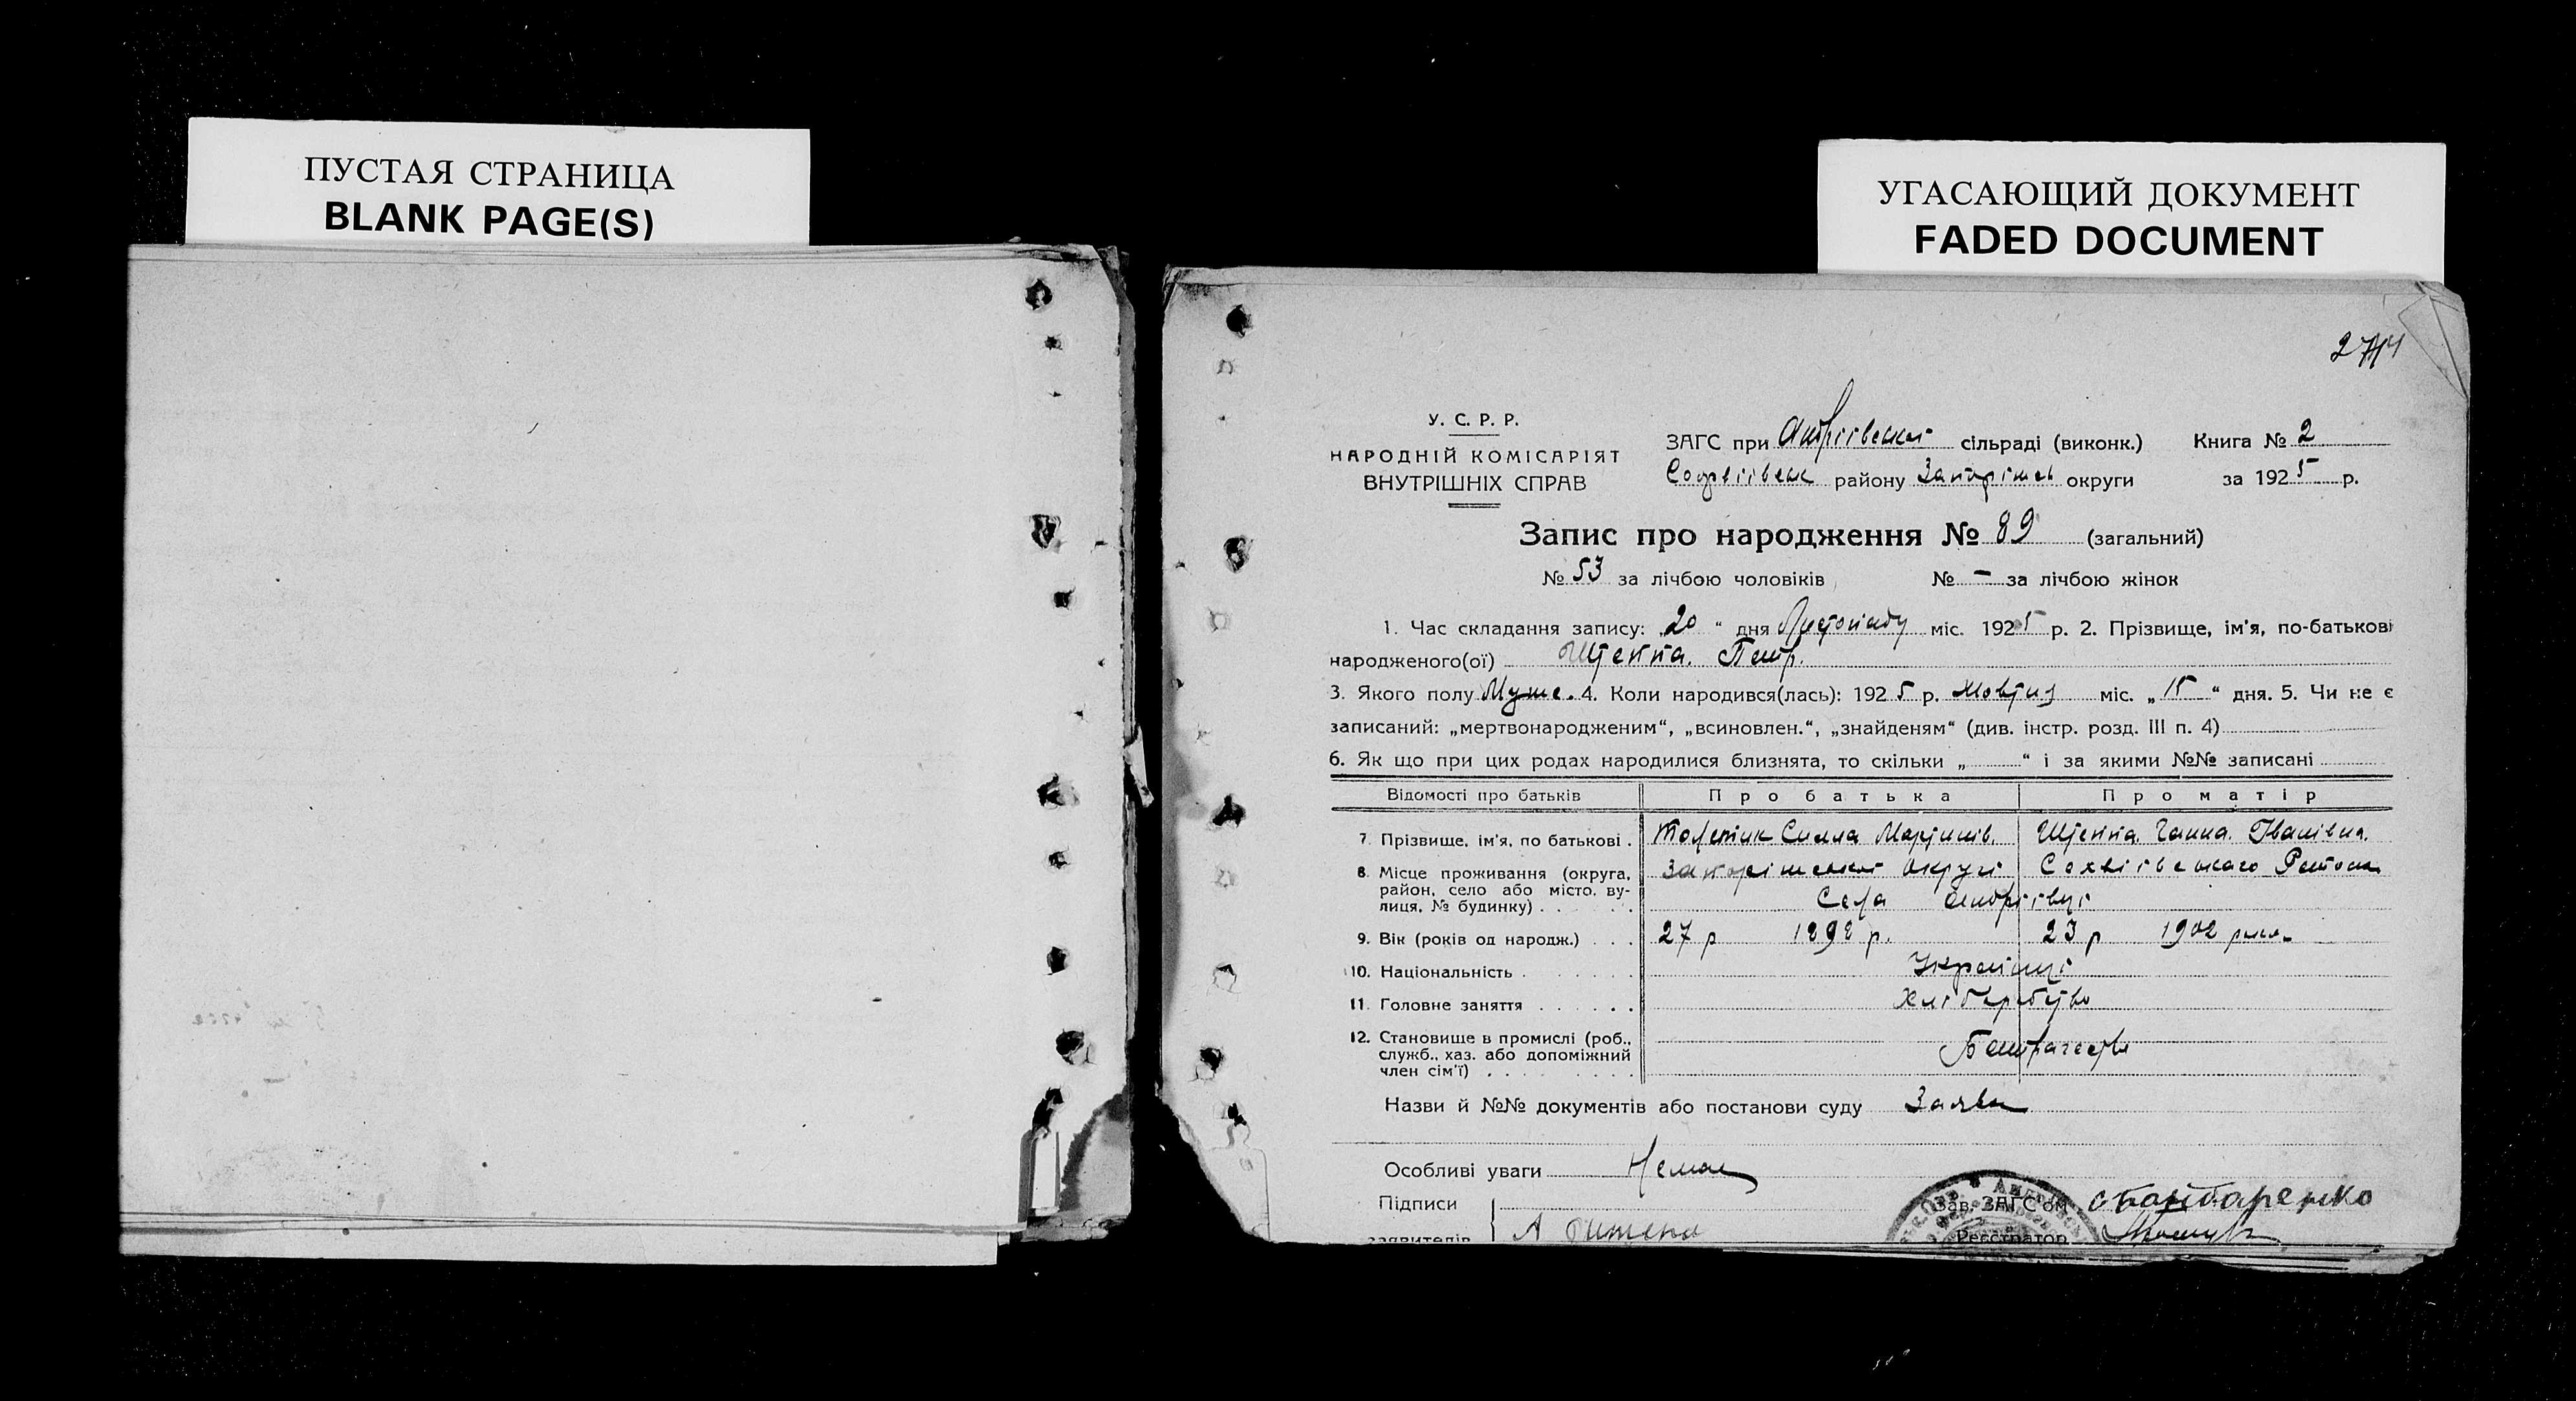 ПУСТАЯ СТРАНИЦА
BLANK PAGE(S)
УГАСАЮЩИЙ ДОКУМЕНТ
FADED DOCUMENT
У. С. Р. Р.
НАРОДНІЙ КОМІСАРІЯТ
ВНУТРІШНІХ СПРАВ
ЗАГС при Андріївській сільраді (виконк.) Книга № 2
району округи за 1925 р.
Запис про народження № 89 (загальний)
№ 53 за лічбою чоловіків № – за лічбою жінок
1. Час складання запису: „20“ дня Листопаду міс. 1925 р. 2. Прізвище, ім'я, по-батькові
народженого(ої) Щепка. Петр.
3. Якого полу Мужс. 4. Коли народився(лась): 1925 р. Жовтня міс. „15“ дня. 5. Чи не є
записаний: „мертвонародженим“, „всиновлен.“, „знайденям“ (див. інстр. розд. III п. 4)
6. Як що при цих родах народилися близнята, то скільки „ “ і за якими №№ записані
Відомості про батьків Про батька Про матір
7. Прізвище, ім'я, по батькові . Мартинів. Щепка. Ганна. Іванівна.
8. Місце проживання (округа, район, село або місто, вулиця, № будинку) . . . Запоріжської округи
Села Андріївці
9. Вік (років од народж.) . . . 27 р 1898 р. 23 р 1902 рок.
10. Національність . . . . . . Українці
11. Головне заняття . . . . . . Хліборобство
12. Становище в промислі (роб., служб., хаз. або допоміжний член сім'ї) . . . . . . . . .
Назви й №№ документів або постанови суду Заява
Особливі уваги Немає
Підписи Зав. ЗАГС'ом
заявителів Реєстратор